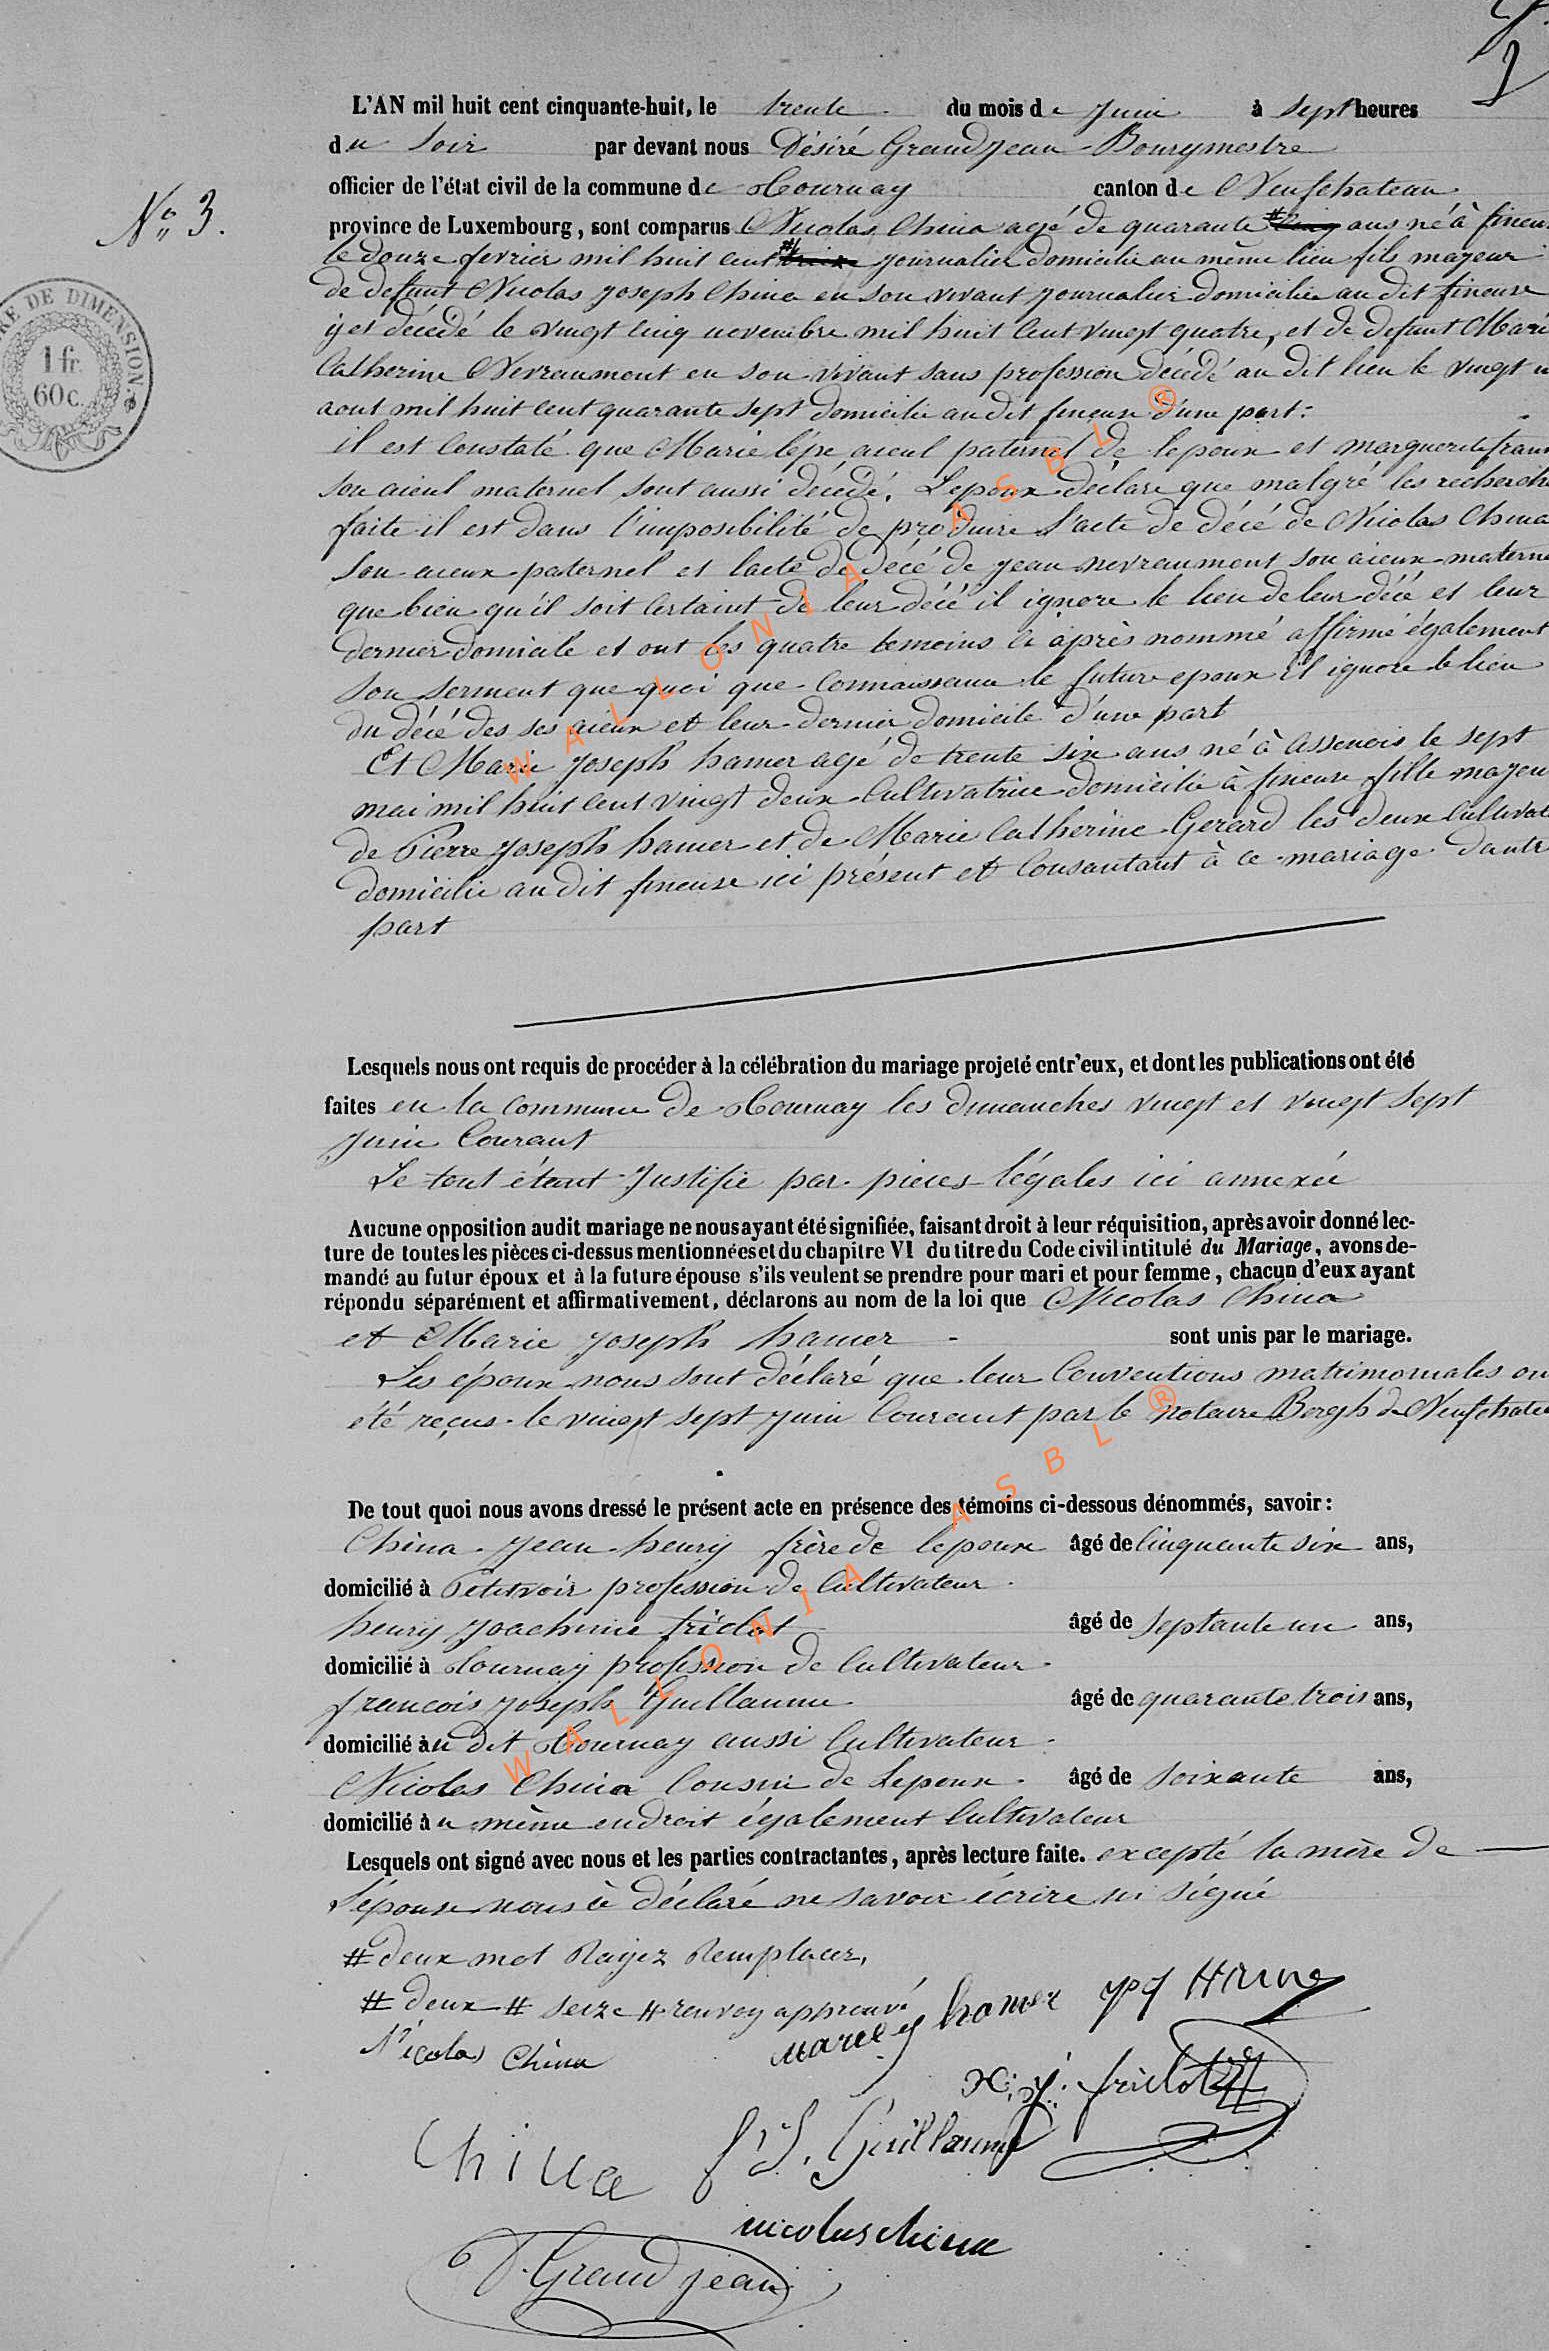 L'AN mil huit cent cinquante-huit, le trente du mois de Juin à sept heures
du soir par devant nous Désiré Grandjean Bourgmestre
officier de l'état civil de la commune de Tournay canton de Neufchateau
N° 3.
province de Luxembourg, sont comparus Nicolas China agé de quarante # cinq ans né à fineu
le douze fevrier mil huit cent # treize journalier domicilié au même lieu fils majeur
de defunt Nicolas joseph China en son vivant journalier domicilié au dit fineuse
y est décédé le vingt cinq novembre mil huit cent vingt quatre, et de defunt Mari
Catherine Nevraumont en son vivant sans profession décédé au dit lieu le vingt
aout mil huit cent quarante sept domicilié au dit fineuse d'une part:
il est constaté que Marie lépe aieul paternel de lepoux et marguerite fran
son aieul maternel sont aussi décédé. Lepoux déclare que malgré les recherch
faite il est dans l'imposibilité de produire l'acte de décé de Nicolas China
son aieux paternel et lacte de décé de jean nevraumont son aieux materne
que bien qu'il soit certaint de leur décé il ignore le lieu de leur décé et leur
dernier domicile et ont les quatre temoins ci après nommé affirmé également
son serment que quoi que connaisseant le future epoux il ignore le lieu
du décé des ses aieux et leur dernier domicile d'une part
Et Marie joseph hamer agé de trente six ans né à assenois le sept
mai mil huit cent vingt deux cultivatrice domicilié à fineuse fille majeu
de Pierre joseph hamer et de Marie Catherine Gerard les deux cultivat
domicilié au dit fineuse ici présent et consantant à ce mariage dautr
part
Lesquels nous ont requis de procéder à la célébration du mariage projeté entr'eux, et dont les publications ont été
faites en la commune de Tournay les dimanches vingt et vingt sept
juin courant
Le tout étant justifie par pieces légales ici annexée
Aucune opposition audit mariage ne nous ayant été signifiée, faisant droit à leur réquisition, après avoir donné lec-
ture de toutes les pièces ci-dessus mentionnées et du chapitre VI du titre du Code civil intitulé du Mariage, avons de-
mandé au futur époux et à la future épouse s'ils veulent se prendre pour mari et pour femme, chacun d'eux ayant
répondu séparément et affirmativement, déclarons au nom de la loi que Nicolas China
et Marie joseph hamer sont unis par le mariage.
Les époux nous sont déclaré que leur conventions matrimoniales on
été reçus le vingt sept juin courant par le notaire Bergh de Neufchatea
De tout quoi nous avons dressé le présent acte en présence des témoins ci-dessous dénommés, savoir:
China jean henry frère de lepoux âgé de cinquante six ans,
domicilié à Petitvoir profession de cultivateur
henry joachime fridot âgé de septante un ans,
domicilié à Tournay profession de cultivateur
francois joseph Guillaume âgé de quarante trois ans,
domicilié au dit Tournay aussi cultivateur
Nicolas China cousin de Lepoux âgé de soixante ans,
domicilié au même endroit également cultivateur
Lesquels ont signé avec nous et les parties contractantes, après lecture faite. excepté la mère de
l'épouse nous à déclaré ne savoir écrire ni signé
# deux mot Rayez Remplacer,
# deux # seize # renvoy approuvé
Nicolas China marie j hamer
fridot
China f. J. Guillaume
nicolas china
D. Grandjean
TIMBRE DE DIMENSION
1 fr.
60 c.
WALLONIA ASBL ®
WALLONIA ASBL ®